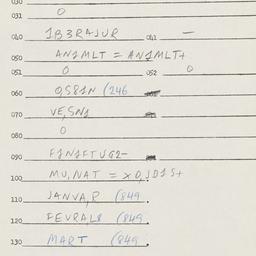 030
031 O
040 1B3RAJUR 041 —
050 AN1MLT = AN1MLT+
051 O 052 O
060 O,S81N (246
070 VE,SN1
080 O
090 F1N1FTUG2-
100 MU,NAT = XO,JD1S+
110 JANVA,R (849.
120 FEVRAL8 (849.
130 MART (849.